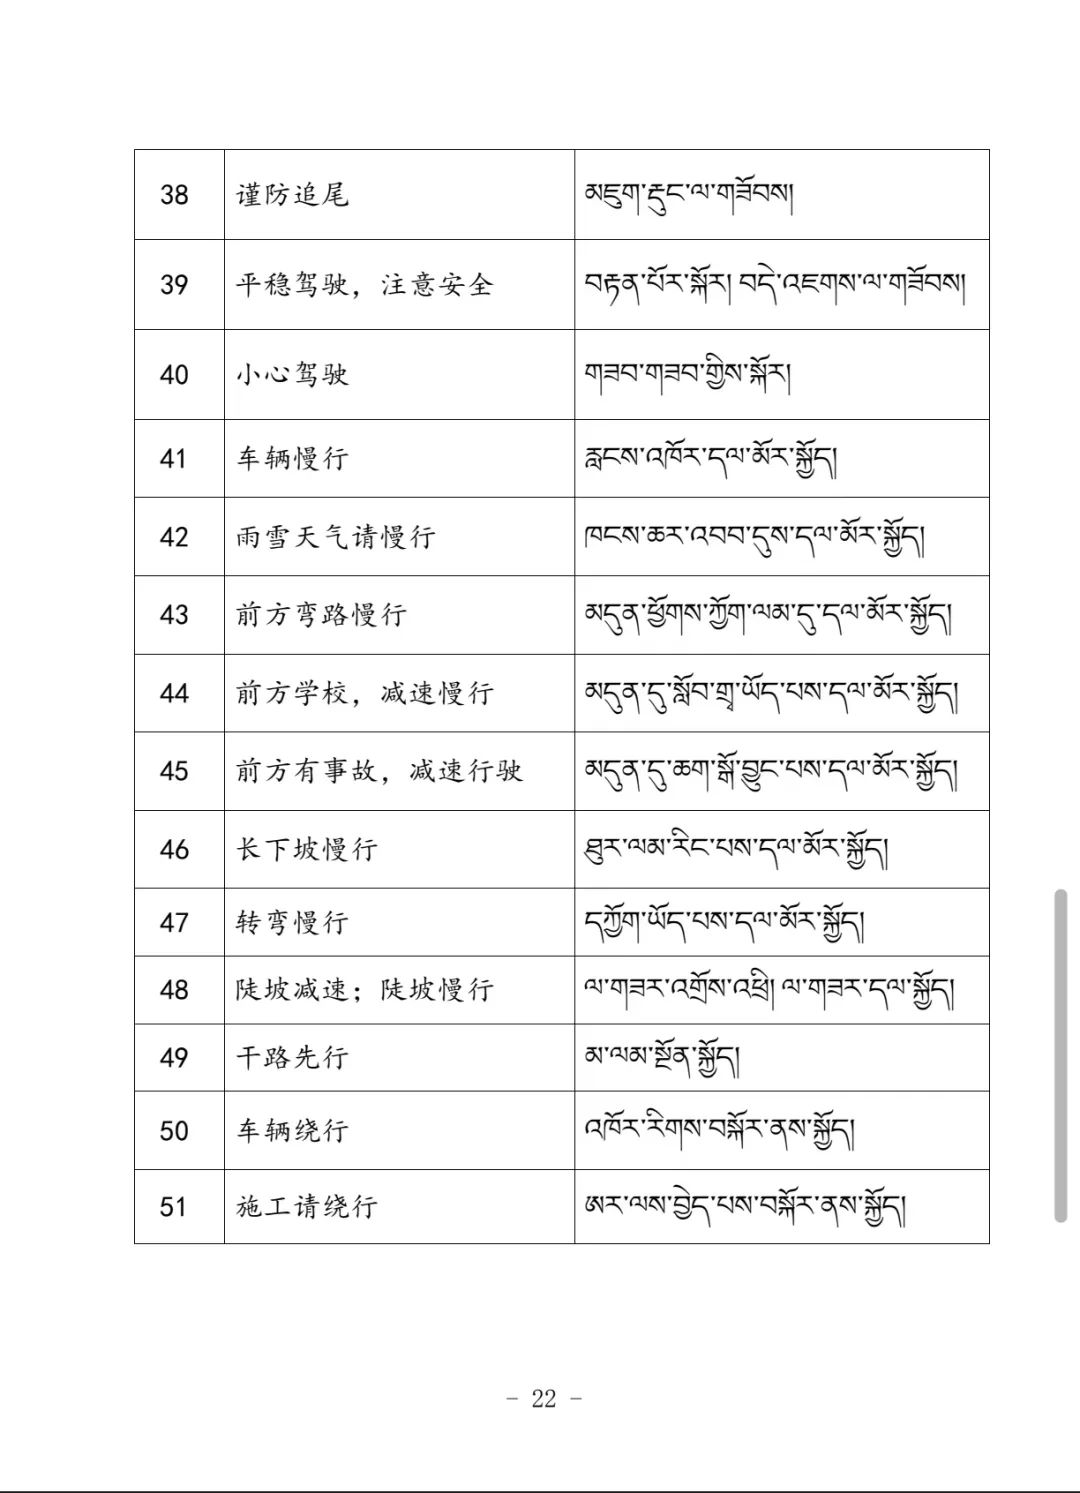 38 谨防追尾 མཇུག་རྡུང་ལ་གཟོབས།
39 平稳驾驶，注意安全 བརྟན་པོར་སྐོར། བདེ་འཇགས་ལ་གཟོབས།
40 小心驾驶 གཟབ་གཟབ་གྱིས་སྐོར།
41 车辆慢行 རླངས་འཁོར་དལ་མོར་སྐྱོད།
42 雨雪天气请慢行 ཁངས་ཆར་འབབ་དུས་དལ་མོར་སྐྱོད།
43 前方弯路慢行 མདུན་ཕྱོགས་ཀྱོག་ལམ་དུ་དལ་མོར་སྐྱོད།
44 前方学校，减速慢行 མདུན་དུ་སློབ་གྲྭ་ཡོད་པས་དལ་མོར་སྐྱོད།
45 前方有事故，减速行驶 མདུན་དུ་ཆག་སྒོ་བྱུང་པས་དལ་མོར་སྐྱོད།
46 长下坡慢行 ཐུར་ལམ་རིང་པས་དལ་མོར་སྐྱོད།
47 转弯慢行 དཀྱོག་ཡོད་པས་དལ་མོར་སྐྱོད།
48 陡坡减速；陡坡慢行 ལ་གཟར་འགྲོས་འཕྲི། ལ་གཟར་དལ་སྐྱོད།
49 干路先行 མ་ལམ་སྔོན་སྐྱོད།
50 车辆绕行 འཁོར་རིགས་བསྐོར་ནས་སྐྱོད།
51 施工请绕行 ཨར་ལས་བྱེད་པས་བསྐོར་ནས་སྐྱོད།
- 22 -